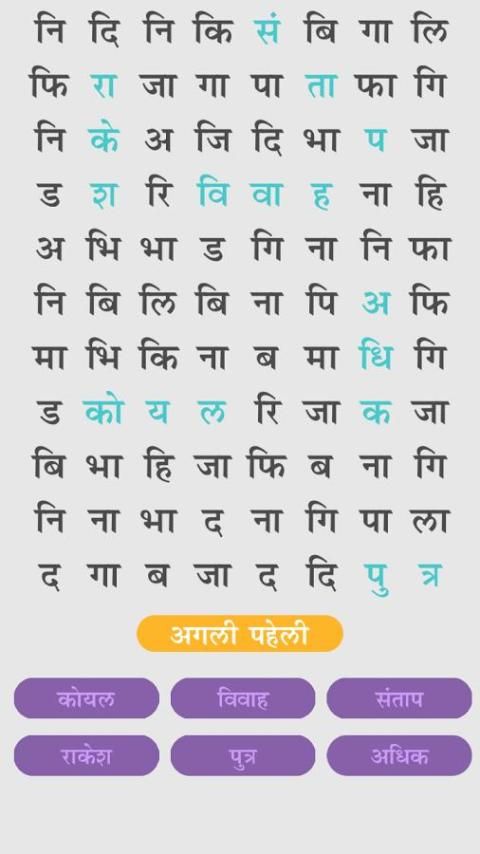 नि दि नि कि सं बि गा लि
फि रा जा गा पा ता फा गि
नि के अ जि दि भा प जा
ड श रि वि वा ह ना हि
अ भि भा ड गि ना नि फा
नि बि लि बि ना पि अ फि
मा भि कि ना ब मा धि गि
ड को य ल रि जा क जा
बि भा हि जा फि ब ना गि
नि ना भा द ना गि पा ला
द गा ब जा द दि पु त्र
अगली पहेली
कोयल विवाह संताप
राकेश पुत्र अधिक